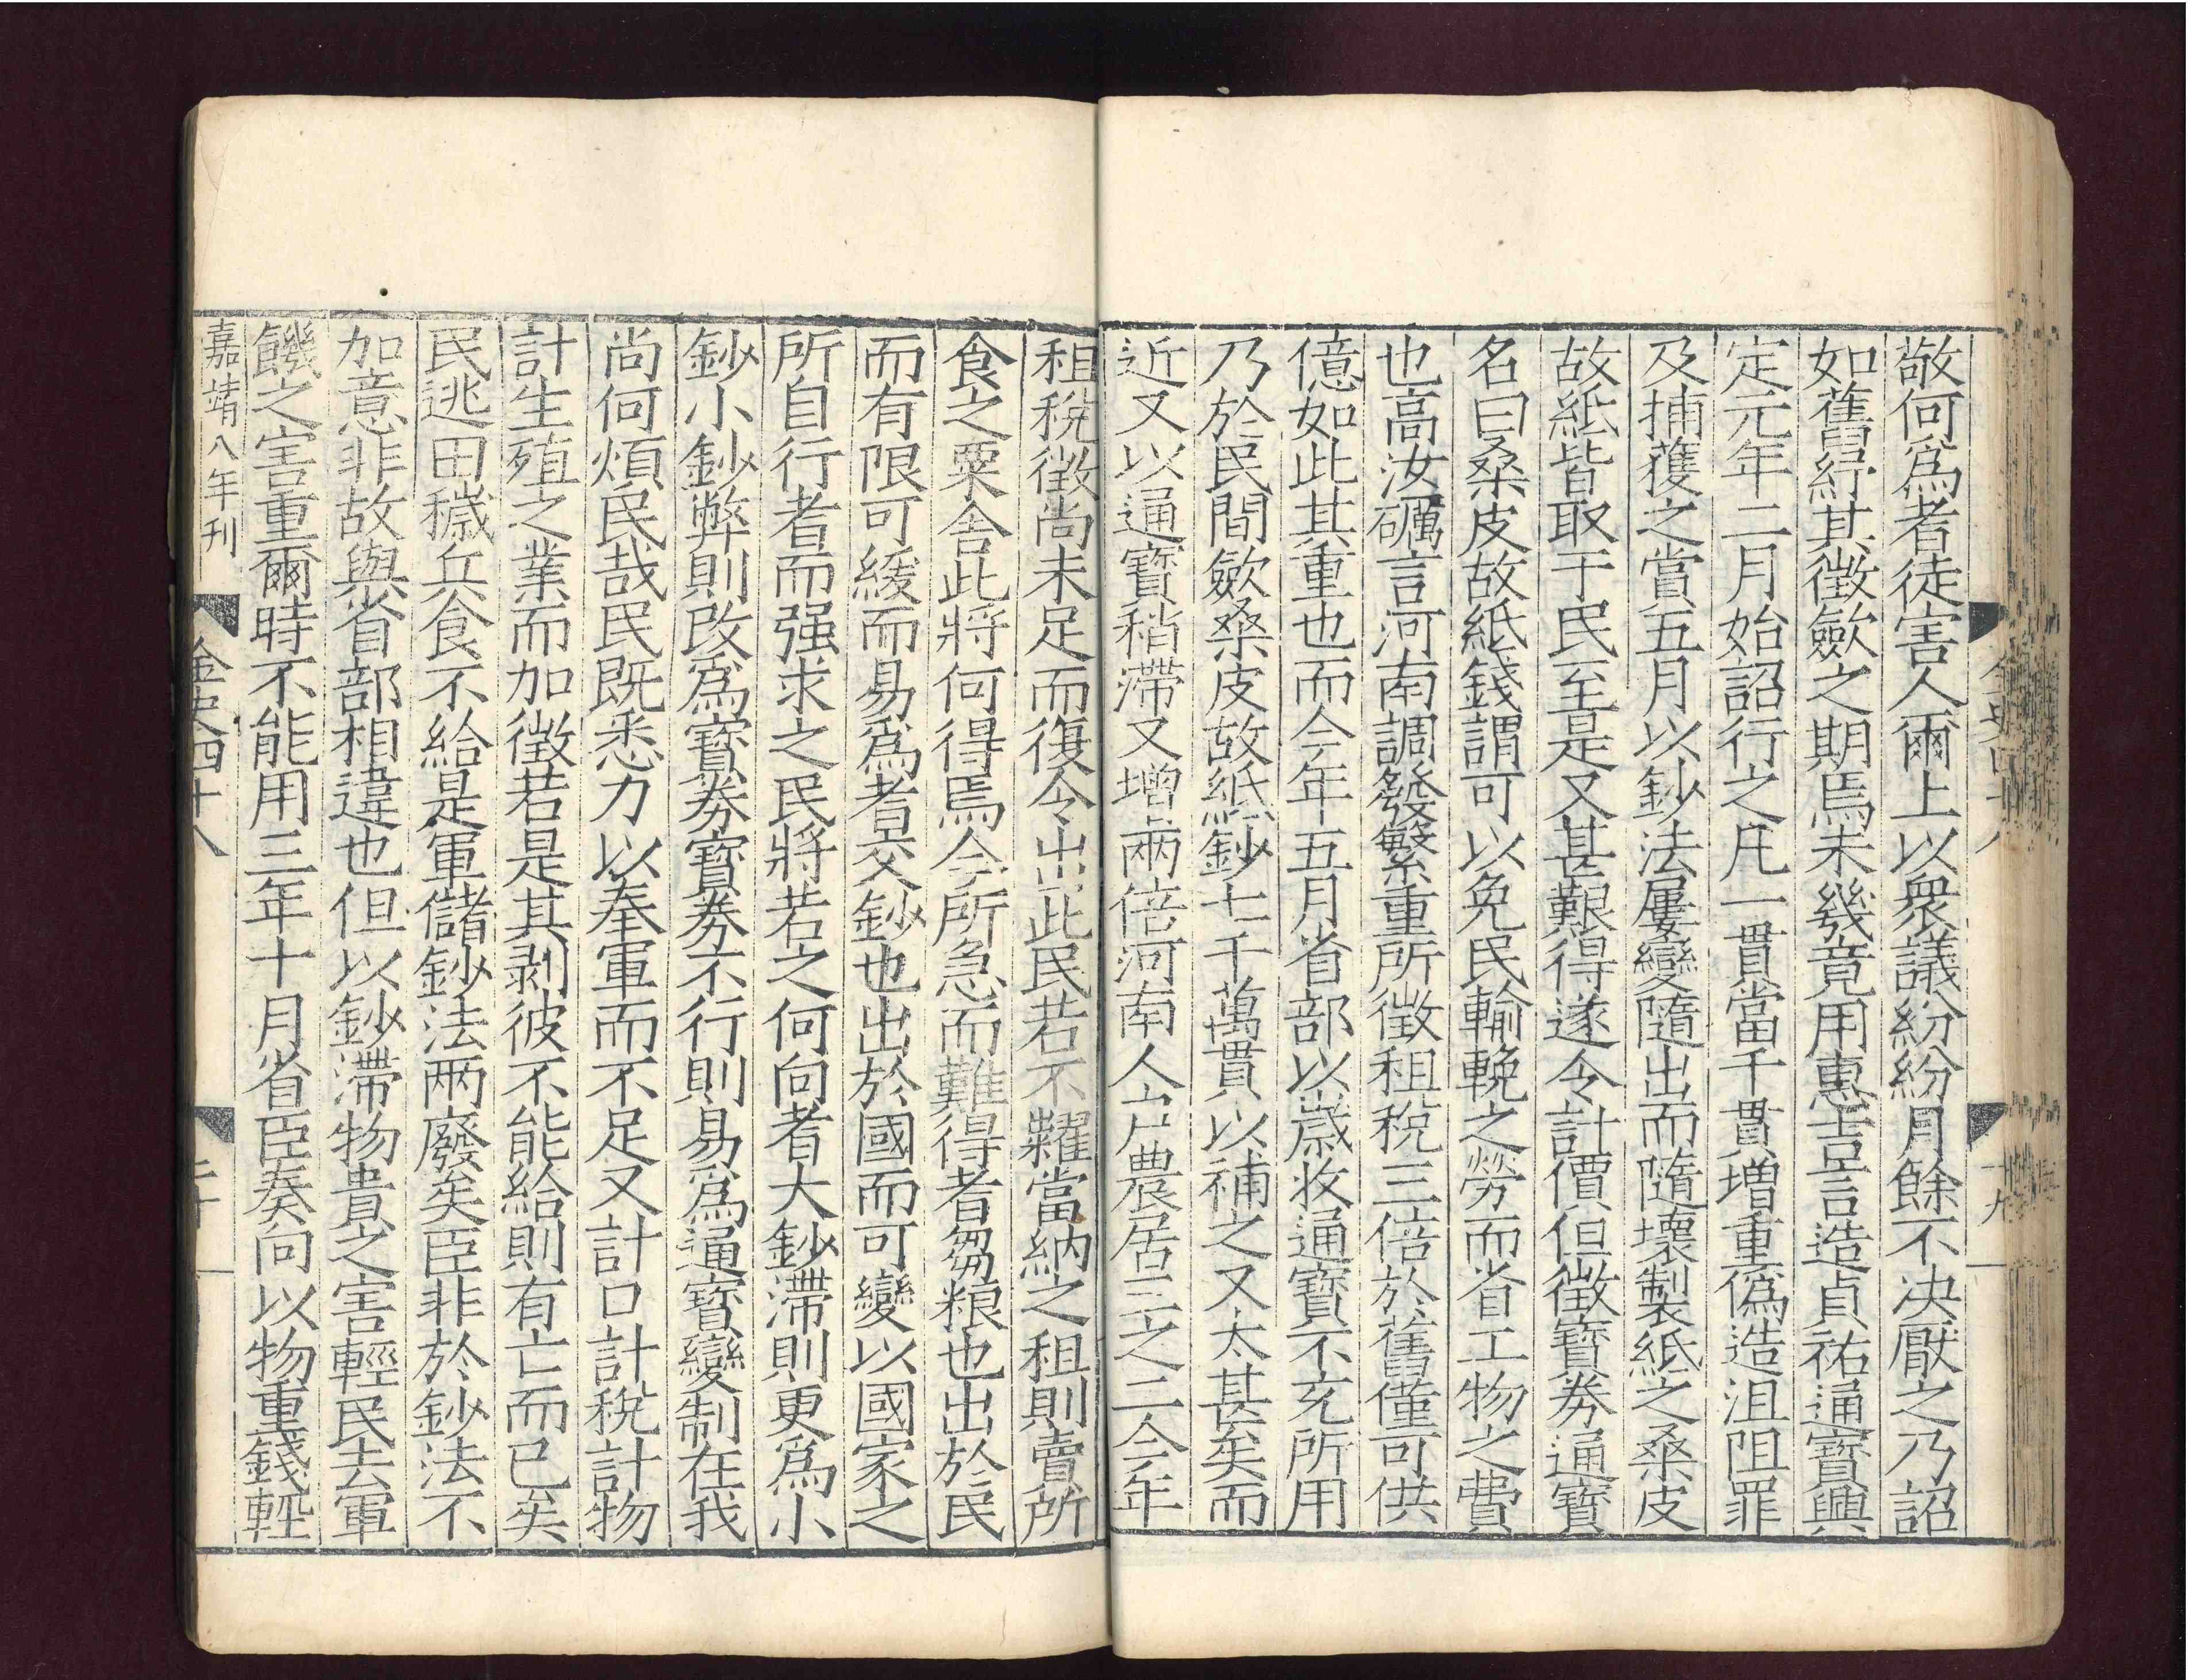 敬何爲者徒害人爾上以衆議紛紛月餘不决厭之乃詔
如舊紓其徵歛之期焉未幾竟用惠吉言造貞祐通寳興
定元年二月始詔行之凡一貫當千貫增重僞造沮阻罪
及捕獲之賞五月以鈔法屢變隨出而隨壞製紙之桑皮
故紙皆取于民至是又甚艱得遂令計價但徵寳券通寳
名曰桑皮故紙錢謂可以免民輸輓之勞而省工物之費
也高汝礪言河南調發繁重所徵租税三倍於舊僅可供
億如此其重也而今年五月省部以歲收通寳不充所用
乃於民間歛桑皮故紙鈔七千萬貫以補之又太甚矣而
近又以通寳稍滯又增兩倍河南人户農居三之二今年
租税徵尚未足而復令出此民若不糶當納之租則賣所
食之粟舎此將何得焉今所急而難得者芻粮也出於民
而有限可緩而易爲者交鈔也出於國而可變以國家之
所自行者而强求之民將若之何向者大鈔滯則更爲小
鈔小鈔弊則改爲寳券寳券不行則易爲通寳變制在我
尚何煩民哉民既悉力以奉軍而不足又計口計税計物
計生殖之業而加徵若是其剥彼不能給則有亡而已矣
民逃田穢兵食不給是軍儲鈔法两廢矣臣非於鈔法不
加意非故與省部相違也但以鈔滯物貴之害輕民去軍
饑之害重爾時不能用三年十月省臣奏向以物重錢輕
嘉靖八年刊 金史四十八 二十
金史四十八 十九